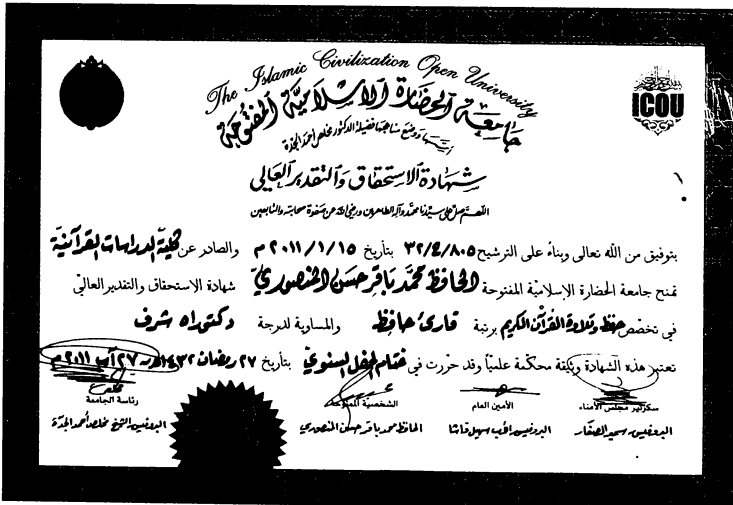 The Islamic Civilization Open University
جامعة الحضارة الإسلامية المفتوحة
أسسها ووضع مناهجها فضيلة الدكتور مخلص أحمد الجدة
ICOU
شهادة الاستحقاق والتقدير العالي
اللهم صل على سيدنا محمد وآله الطاهرين ورضي الله عن صفوة صحابته والتابعين
بتوفيق من الله تعالى وبناء على الترشيح ٣٢/٤/٨٠٥ بتاريخ ٢٠١١/١/١٥ م والصادر عن كلية الدراسات القرآنية
تمنح جامعة الحضارة الإسلامية المفتوحة الحافظ محمد باقر حسن المنصوري شهادة الاستحقاق والتقدير العالي
في تخصص حفظ وتلاوة القرآن الكريم برتبة قارئ حافظ والمساوية لدرجة دكتوراه شرف
تعتبر هذه الشهادة وثيقة محكمة علمياً وقد حررت في ختام الحفل السنوي بتاريخ ٢٧ رمضان ١٤٣٢هـ ٢٧ آب ٢٠١١ م
سكرتير مجلس الأمناء
الأمين العام
الشخصية الممنوحة
رئاسة الجامعة
البروفيسر سمير الصفار
البروفيسر سهيل قاشا
الحافظ محمد باقر حسن المنصوري
البروفيسر الشيخ مخلص أحمد الجدة